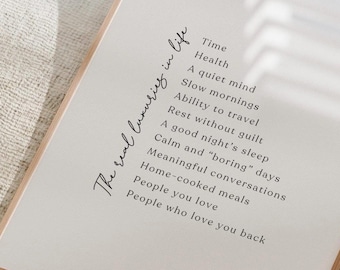 The real luxuries in life
Time
Health
A quiet mind
Slow mornings
Ability to travel
Rest without guilt
A good night's sleep
Calm and "boring" days
Meaningful conversations
Home-cooked meals
People you love
People who love you back